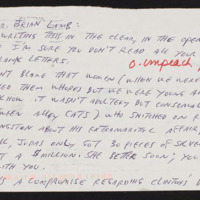 BRIAN LAMB:
WRITING THIS IN THE CLEAR, IN THE OPEN
I'M SURE YOU DON'T READ ALL YOUR
LETTERS.
O. impeach
BLAME THAT WOMEN (WHEN WE WERE
THEM WHORES BUT WE WERE YOUNG A
KNOW IT WASN'T ADULTERY BUT
ALLEY CATS) WHO SNITCHED ON
ABOUT HIS EXTRAMARITAL AFFAIR,
JUDAS ONLY GOT 30 PIECES OF SILVER
A $MILLION. SHE BETTER SOON; YO
WITH YOU.
A COMPROMISE REGARDING